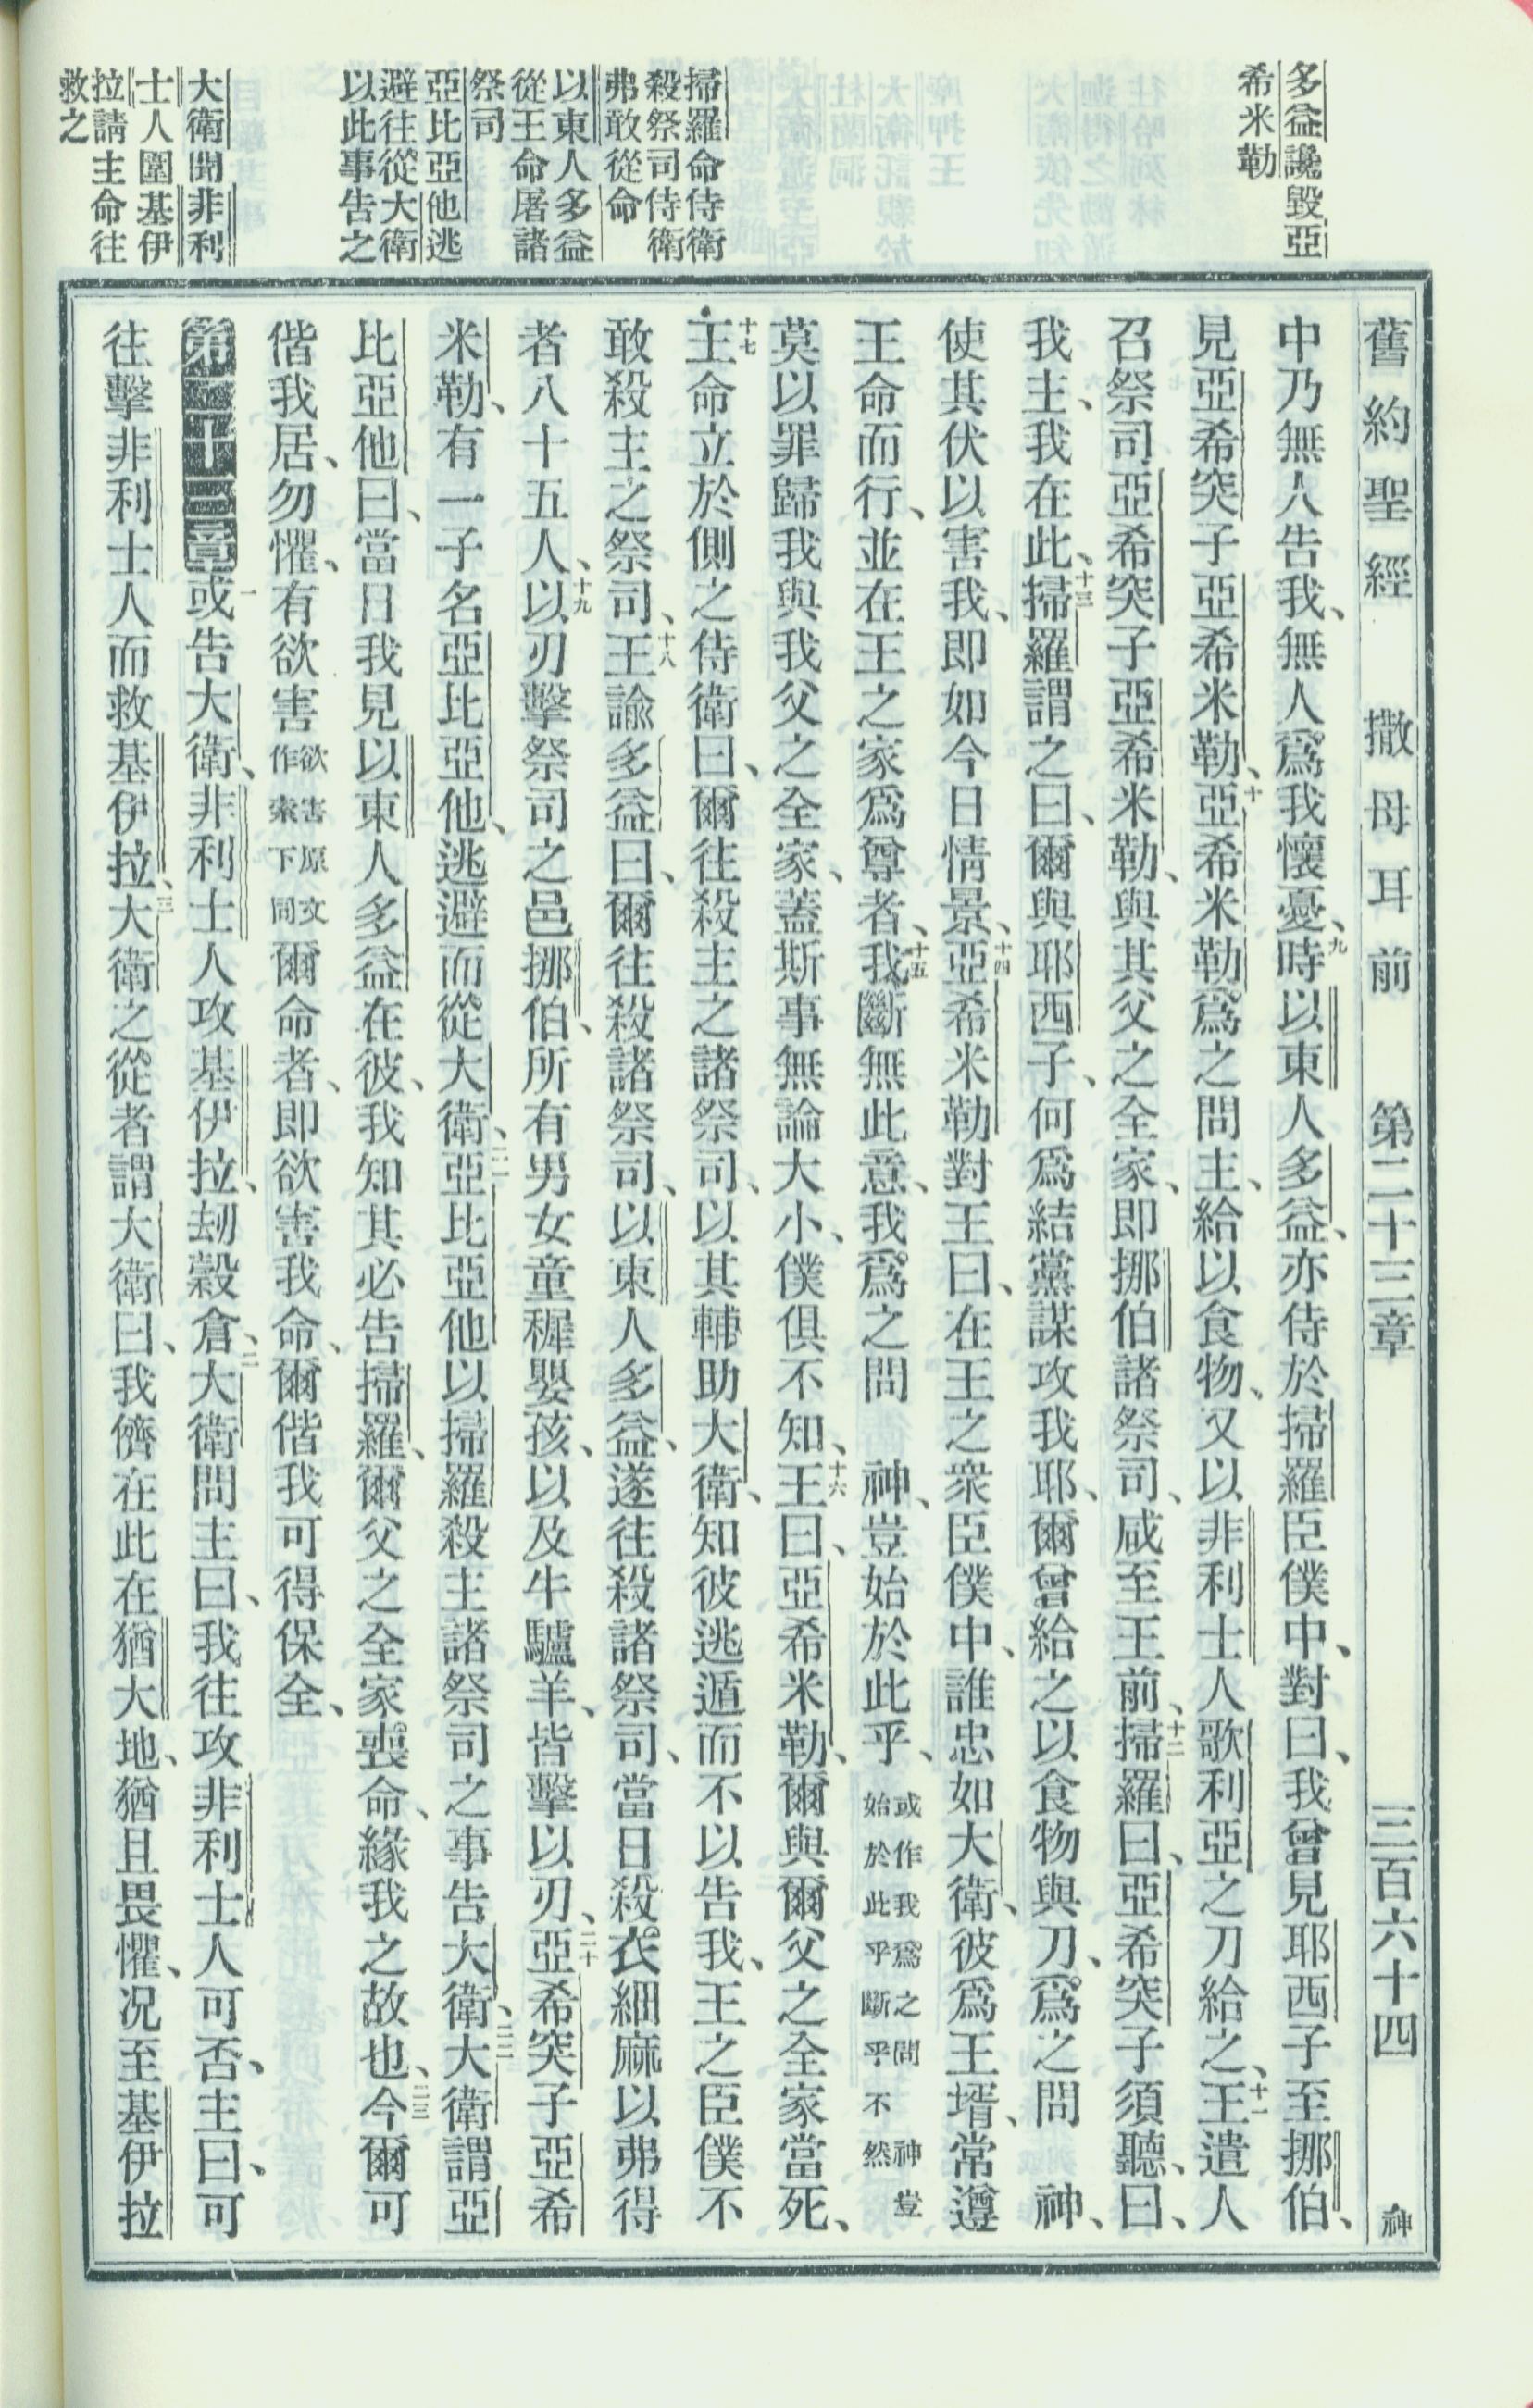 舊約聖經 撒母耳前 第二十三章 三百六十四 神
多益讒毀亞
希米勒
掃羅命侍衛
殺祭司侍衛
弗敢從命
以東人多益
從王命屠諸
祭司
亞比亞他逃
避往從大衛
以此事告之
大衛聞非利
士人圍基伊
拉請主命往
救之
中乃無人告我、無人爲我懷憂、九時以東人多益、亦侍於掃羅臣僕中、對曰、我曾見耶西子至挪伯、
見亞希突子亞希米勒、十亞希米勒爲之問主、給以食物、又以非利士人歌利亞之刀給之、十一王遣人
召祭司亞希突子亞希米勒、與其父之全家、即挪伯諸祭司、咸至王前、十二掃羅曰、亞希突子須聽、曰、
我主、我在此、十三掃羅謂之曰、爾與耶西子、何爲結黨謀攻我耶、爾曾給之以食物與刀、爲之問 神、
使其伏以害我、即如今日情景、十四亞希米勒對王曰、在王之衆臣僕中、誰忠如大衛、彼爲王壻、常遵
王命而行、並在王之家爲尊者、十五我斷無此意、我爲之問 神、豈始於此乎、或作我爲之問 神豈始於此乎斷乎不然
莫以罪歸我與我父之全家、蓋斯事無論大小、僕俱不知、十六王曰、亞希米勒、爾與爾父之全家當死、
十七王命立於側之侍衛曰、爾往殺主之諸祭司、以其輔助大衛、知彼逃遁而不以告我、王之臣僕不
敢殺主之祭司、十八王諭多益曰、爾往殺諸祭司、以東人多益、遂往殺諸祭司、當日殺衣細麻以弗得
者八十五人、十九以刃擊祭司之邑挪伯、所有男女童穉嬰孩、以及牛驢羊、皆擊以刃、二十亞希突子亞希
米勒、有一子名亞比亞他、逃避而從大衛、二一亞比亞他以掃羅殺主諸祭司之事告大衛、二二大衛謂亞
比亞他曰、當日我見以東人多益在彼、我知其必告掃羅、爾父之全家喪命、緣我之故也、二三今爾可
偕我居、勿懼、有欲害欲害原文作索下同爾命者、即欲害我命、爾偕我可得保全、
第二十三章一或告大衛、非利士人攻基伊拉、刼穀倉、二大衛問主曰、我往攻非利士人可否、主曰、可
往擊非利士人而救基伊拉、三大衛之從者謂大衛曰、我儕在此在猶大地、猶且畏懼、况至基伊拉